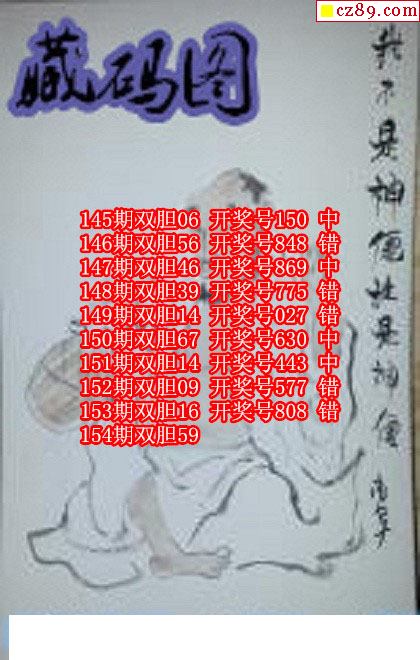 cz89.com
藏码图
145期双胆06 开奖号150 中
146期双胆56 开奖号848 错
147期双胆46 开奖号869 中
148期双胆39 开奖号775 错
149期双胆14 开奖号027 错
150期双胆67 开奖号630 中
151期双胆14 开奖号443 中
152期双胆09 开奖号577 错
153期双胆16 开奖号808 错
154期双胆59
我不是神仙谁是神仙